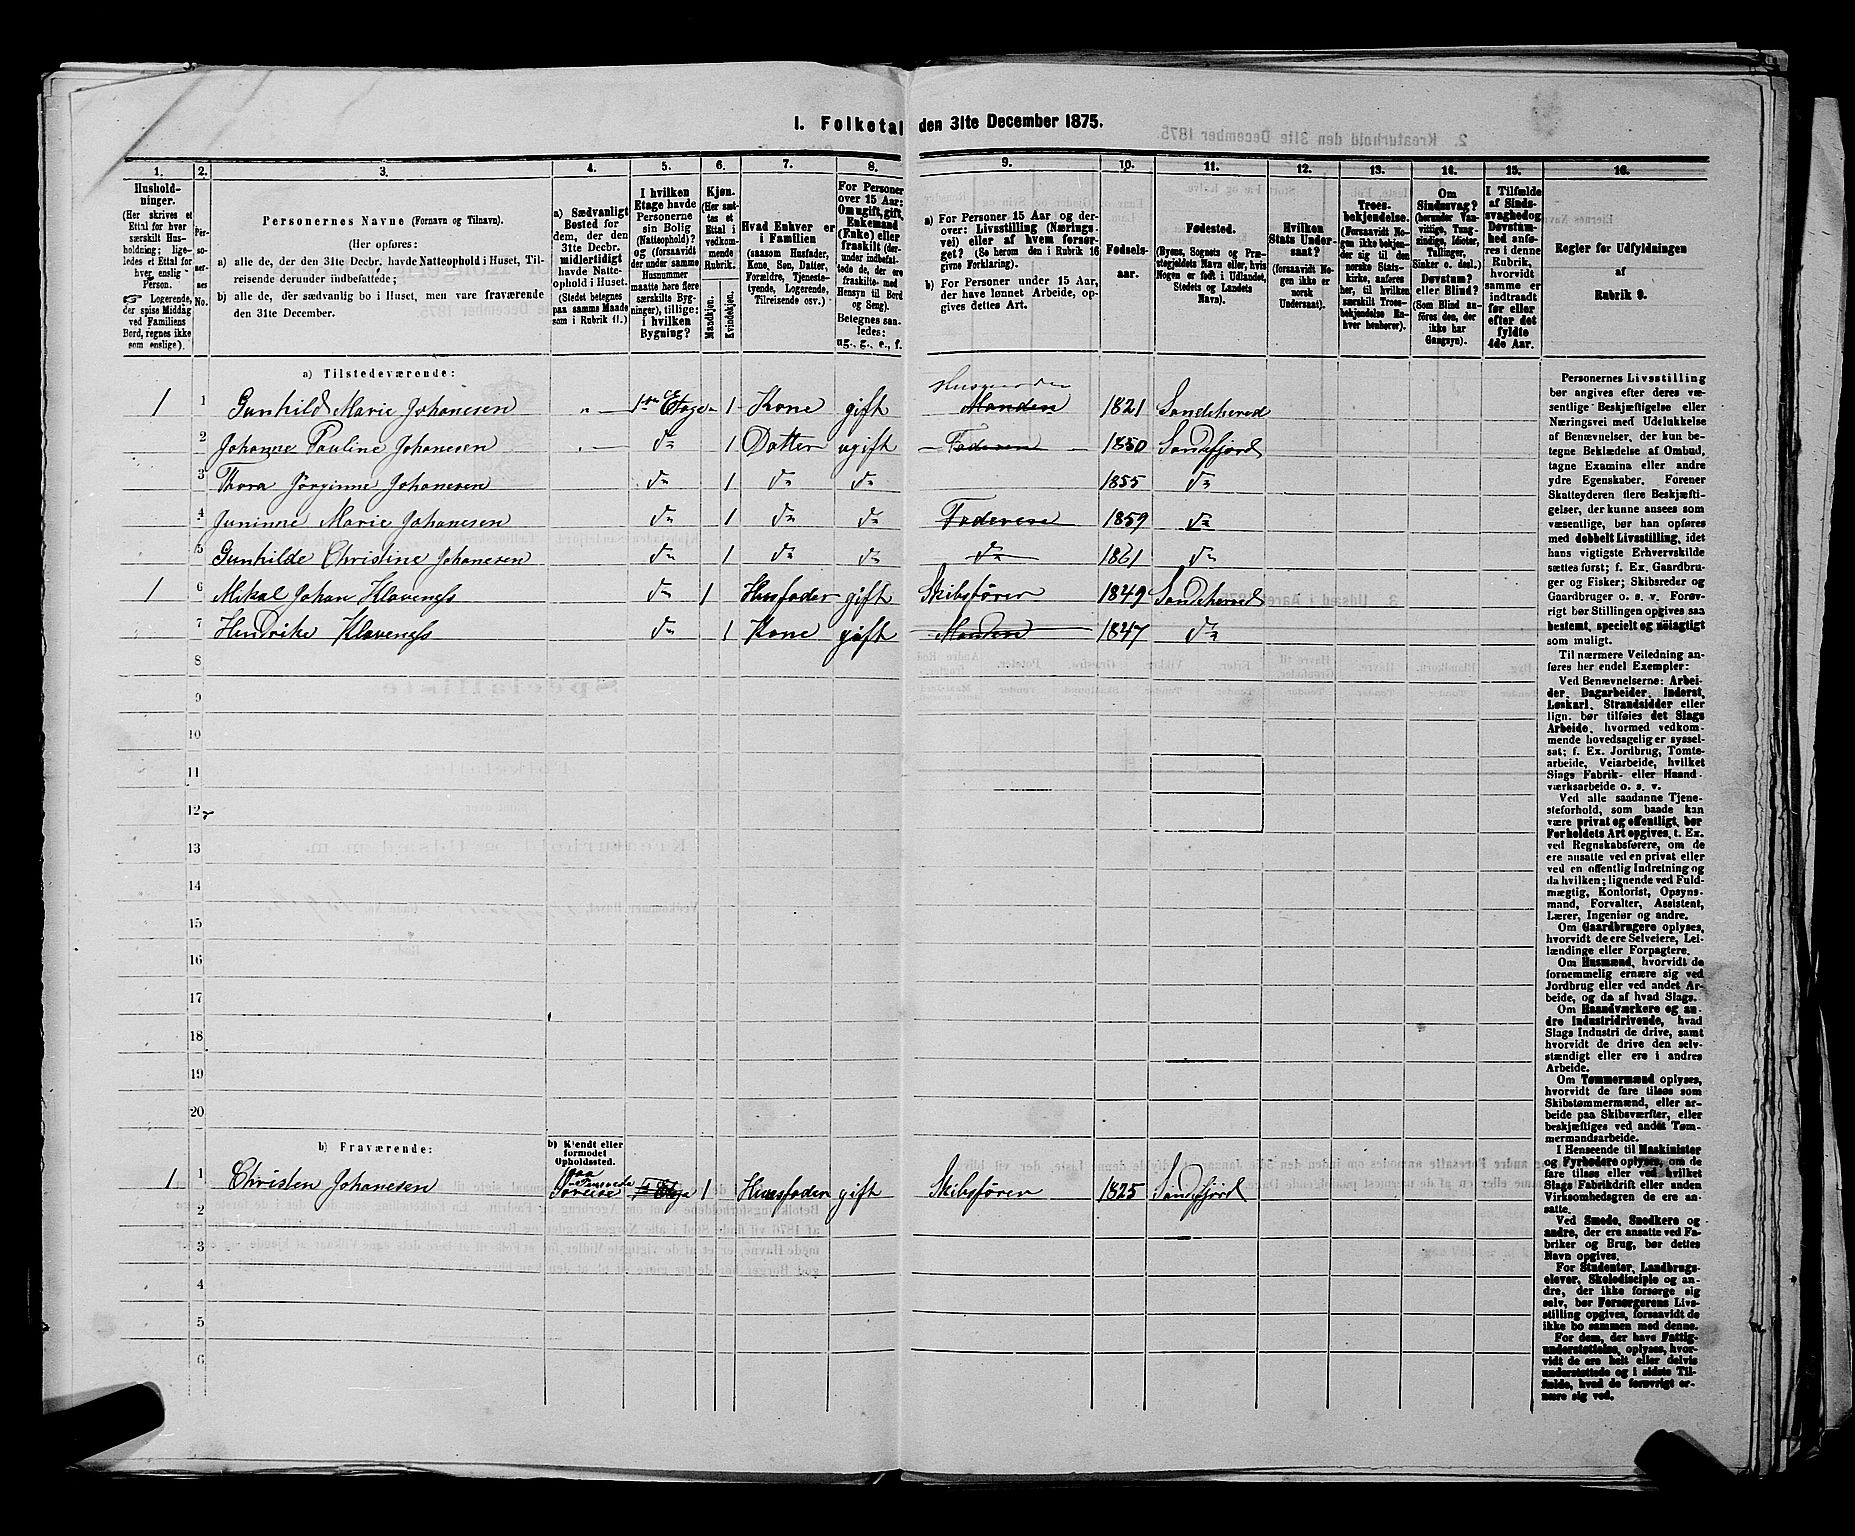 1. Folketal den 31te December 1875.
1.
2.
3.
4.
5.
6.
7.
8.
9.
10.
11.
12.
13.
14.
15.
16.
Hushold-
ninger.
(Her skrives et
Ettal for hver
særskilt Hus-
holdning; lige-
ledes et Ettal for
hver enslig
Person.
☞ Logerende,
der spise Middag
ved Familiens
Bord, regnes ikke
som enslige).
Per-
so-
ner-
nes
No.
Personernes Navne (Fornavn og Tilnavn).
(Her opføres:
a) alle de, der den 31te Decbr. havde Natteophold i Huset, Til-
reisende derunder indbefattede;
b) alle de, der sædvanlig bo i Huset, men vare fraværende
den 31te December.
a) Sædvanligt
Bosted for
dem, der den
31te Decbr.
midlertidigt
havde Natte-
ophold i Huset.
(Stedet betegnes
paa samme Maade
som i Rubrik 11.)
I hvilken
Etage havde
Personerne
sin Bolig
(Natteophold)?
og (forsaavidt
der under samme
Husnummer
maatte høre flere
særskilte Byg-
ninger), tillige:
i hvilken
Bygning?
Kjøn.
(Her sæt-
tes et
Ettal i
vedkom-
mende
Rubrik.
Mandkjøn.
Kvindekjøn.
Hvad Enhver er
i Familien
(saasom Husfader,
Kone, Søn, Datter,
Forældre, Tjeneste-
tyende, Logerende,
Tilreisende osv.)
For Personer
over 15 Aar:
Om ugift, gift,
Enkemand
(Enke) eller
fraskilt (der-
under indbefat-
tede de, der ere
fraskilte med
Hensyn til Bord
og Seng).
Betegnes saa-
ledes:
ug., g., e., f.
a) For Personer 15 Aar og der-
over: Livsstilling (Nærings-
vei) eller af hvem forsør-
get? (Se herom den i Rubrik 16
givne Forklaring).
b) For Personer under 15 Aar,
der have lønnet Arbeide, op-
gives dettes Art.
Fødsels-
aar.
Fødested.
(Byens, Sognets og Præ-
stegjeldets Navn eller, hvis
Nogen er født i Udlandet,
Stedets og Landets
Navn).
Hvilken
Stats Under-
saat?
(forsaavidt No-
gen ikke er
norsk
Undersaat).
Troes-
bekjendelse.
(Forsaavidt No-
gen ikke bekjen-
der sig til den
norske Stats-
kirke, anføres
her, til hvilken
særskilt Troes-
bekjendelse En-
hver henhører).
Om
Sindssvag?
(herunder Van-
vittige, Tung-
sindige, Idioter,
Tullinger,
Sinker o. desl.)
Døvstum?
eller Blind?
(Som Blind an-
føres den, der
ikke har
Gangsyn).
I Tilfælde
af Sinds-
svaghed og
Døvstum-
hed anfø-
res i denne
Rubrik,
hvorvidt
samme er
indtraadt
før eller
efter det
fyldte
4de Aar.
Regler for Udfyldningen
af
Rubrik 9.
a) Tilstedeværende:
1 1 Gunhild Marie Johanesen " 1ste Etage 1 Kone gift Manden 1821 Sandeherred
2 Johanne Pauline Johanesen " do 1 Datter ugift Faderen 1850 Sandefjord
3 Thora Jørginne Johanesen do 1 do do 1855 do
4 Juninne Marie Johanesen do 1 do do Faderen 1859 do
5 Gunhilde Christine Johanesen do 1 do do do 1861 do
1 6 Mikal Johan Klaveness do 1 Husfader gift Skibsfører 1849 Sandeherred
7 Hendrike Klaveness do 1 Kone gift Manden 1847 do
8
9
10
11
12
13
14
15
16
17
18
19
20
b) Fraværende:
b) Kjendt eller
formodet
Opholdssted.
paa
1 1 Christen Johanesen Etage 1 Huusfader gift Skibsfører 1825 Sandefjord
2
3
4
5
6
Personernes Livsstilling
bør angives efter deres væ-
sentlige Beskjæftigelse eller
Næringsvei med Udelukkelse
af Benævnelser, der kun be-
tegne Beklædelse af Ombud,
tagne Examina eller andre
ydre Egenskaber. Forener
Skatteyderen flere Beskjæfti-
gelser, der kunne ansees som
væsentlige, bør han opføres
med dobbelt Livsstilling, idet
hans vigtigste Erhvervskilde
sættes først; f. Ex. Gaardbru-
ger og Fisker; Skibsreder og
Gaardbruger o. s. v. Forøv-
rigt bør Stillingen opgives saa
bestemt, specielt og nøiagtigt
som muligt.
Til nærmere Veiledning an-
føres her endel Exempler:
Ved Benævnelserne: Arbei-
der, Dagarbeider, Inderst,
Løskarl, Strandsidder eller
lign. bør tilføies det Slags
Arbeide, hvormed vedkom-
mende hovedsagelig er syssel-
sat; f. Ex. Jordbrug, Tomte-
arbeide, Veiarbeide, hvilket
Slags Fabrik- eller Haand-
værksarbeide o. s. v.
Ved alle saadanne Tjene-
steforhold, som baade kan
være privat og offentligt, bør
Forholdets Art opgives, t. Ex.
ved Regnskabsførere, om de
ere ansatte ved en privat eller
ved en offentlig Indretning og
da hvilken; lignende ved Fuld-
mægtig, Kontorist, Opsyns-
mand, Forvalter, Assistent,
Lærer, Ingeniør og andre.
Om Gaardbrugere oplyses,
hvorvidt de ere Selveiere, Lei-
lændinge eller Forpagtere.
Om Husmænd, hvorvidt de
fornemmelig ernære sig ved
Jordbrug eller ved andet Ar-
beide, og da af hvad Slags.
Om Haandværkere og an-
dre Industridrivende, hvad
Slags Industri de drive, samt
hvorvidt de drive den selv-
stændigt eller ere i andres
Arbeide.
Om Tømmermænd oplyses,
hvorvidt de fare tilsøs som
Skibstømmermænd, eller ar-
beide paa Skibsværfter, eller
beskjæftiges ved andet Tøm-
mermandsarbeide.
I Henseende til Maskinister
og Fyrbødere oplyses, om de
fare tilsøs eller ved hvilket
Slags Fabrikdrift eller anden
Virksomhedsgren de ere an-
satte.
Ved Smede, Snedkere og
andre, der ere ansatte ved Fa-
briker og Brug, bør dettes
Navn opgives.
For Studenter, Landbrugs-
elever, Skoledisciple og an-
dre, der ikke forsørge sig
selv, bør Forsørgerens Livs-
stilling opgives, forsaavidt de
ikke bo sammen med denne.
For dem, der have Fattig-
understøttelse, oplyses, hvor-
vidt de ere helt eller delvis
understøttede og i sidste Til-
fælde, hvad de forøvrigt er-
nære sig ved.